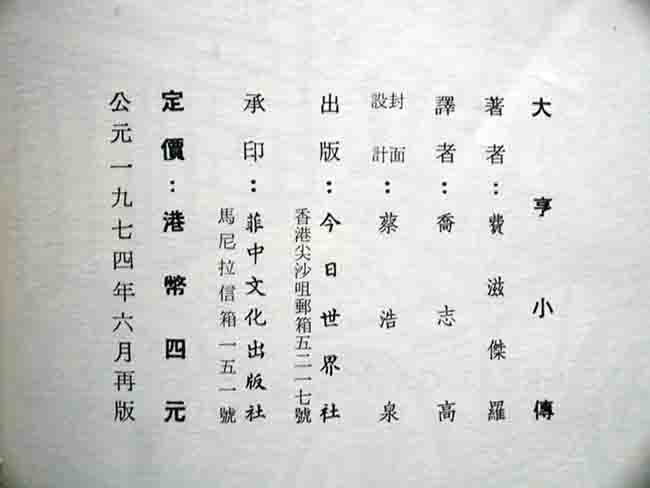 大亨小傳
著者：費滋傑羅
譯者：喬志高
封面設計：蔡浩泉
出版：今日世界社
香港尖沙咀郵箱五二一七號
承印：菲中文化出版社
馬尼拉信箱一五一號
定價：港幣四元
公元一九七四年六月再版